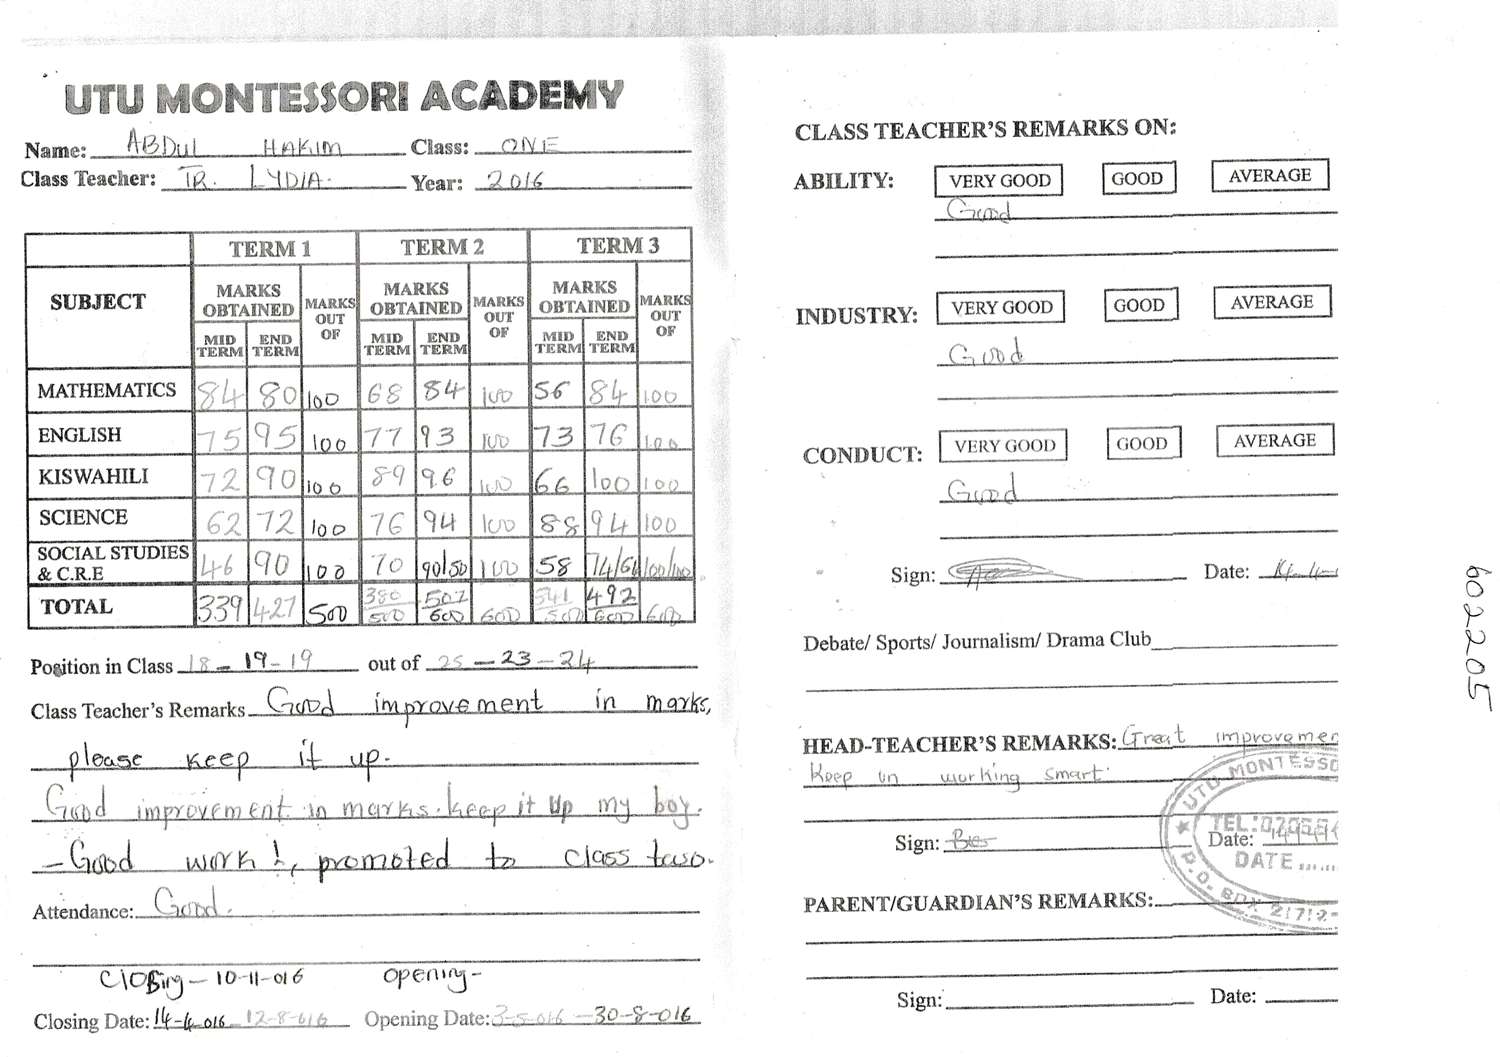 UTU MONTESSORI ACADEMY
Name: ABDul HAKIM Class: ONE
Class Teacher: TR. LYDIA. Year: 2016
TERM 1 TERM 2 TERM 3
SUBJECT MARKS OBTAINED MARKS OUT OF MARKS OBTAINED MARKS OUT OF MARKS OBTAINED MARKS OUT OF
MID TERM END TERM MID TERM END TERM MID TERM END TERM
MATHEMATICS 84 80 100 68 84 100 56 84 100
ENGLISH 75 95 100 77 93 100 73 76 100
KISWAHILI 72 90 100 89 96 100 66 100 100
SCIENCE 62 72 100 76 94 100 88 94 100
SOCIAL STUDIES & C.R.E 46 90 100 70 90/50 100 58 74/64 100/100
TOTAL 339 427 500 380/500 507/600 600 341/500 492/600 600
Position in Class 18 - 19 - 19 out of 25 - 23 - 24
Class Teacher's Remarks Good improvement in marks,
please keep it up.
Good improvement in marks. keep it up my boy.
- Good work!, promoted to class two.
Attendance: Good.
Closing - 10-11-016 opening -
Closing Date: 14-4-016 12-8-016 Opening Date: 3-5-016 - 30-8-016
CLASS TEACHER'S REMARKS ON:
ABILITY: VERY GOOD GOOD AVERAGE
Good
INDUSTRY: VERY GOOD GOOD AVERAGE
Good
CONDUCT: VERY GOOD GOOD AVERAGE
Good
Sign: Date: 14-4-
Debate/ Sports/ Journalism/ Drama Club
HEAD-TEACHER'S REMARKS: Great improvemen
Keep on working smart.
UTU MONTESSO
TEL:
Sign: Date:
DATE
P.O. BOX 21712-
PARENT/GUARDIAN'S REMARKS:
Sign: Date:
602205